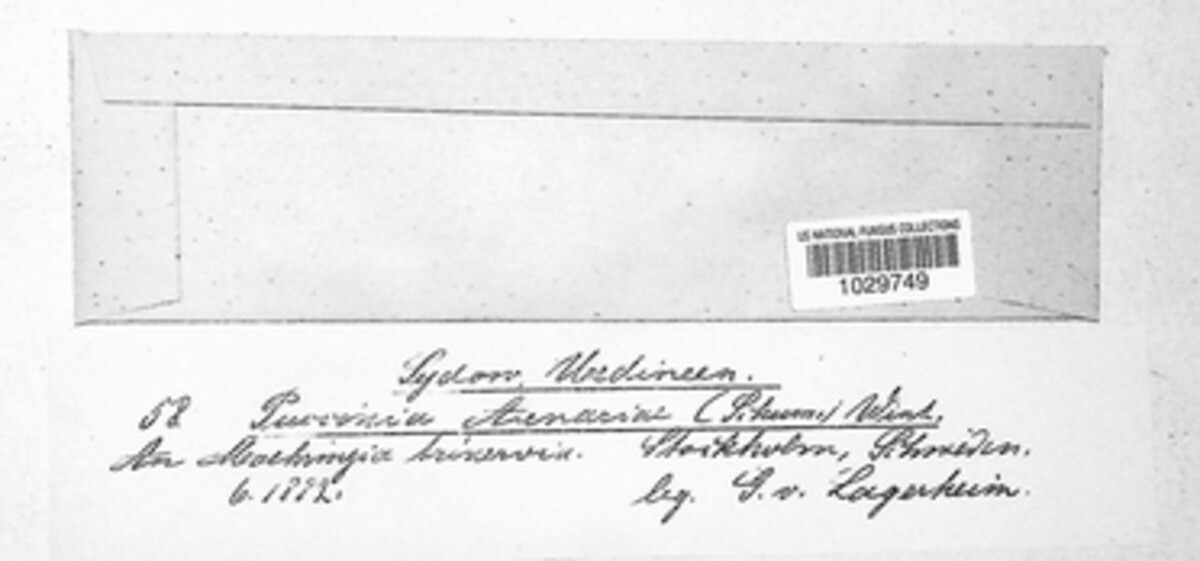 US NATIONAL FUNGUS COLLECTIONS
1029749
Sydow, Uredineen.
58 Puccinia Arenariae (Schum.) Wint.
An Moehringia trinervia. Stockholm, Schweden.
6. 1882. leg. G. v. Lagerheim.